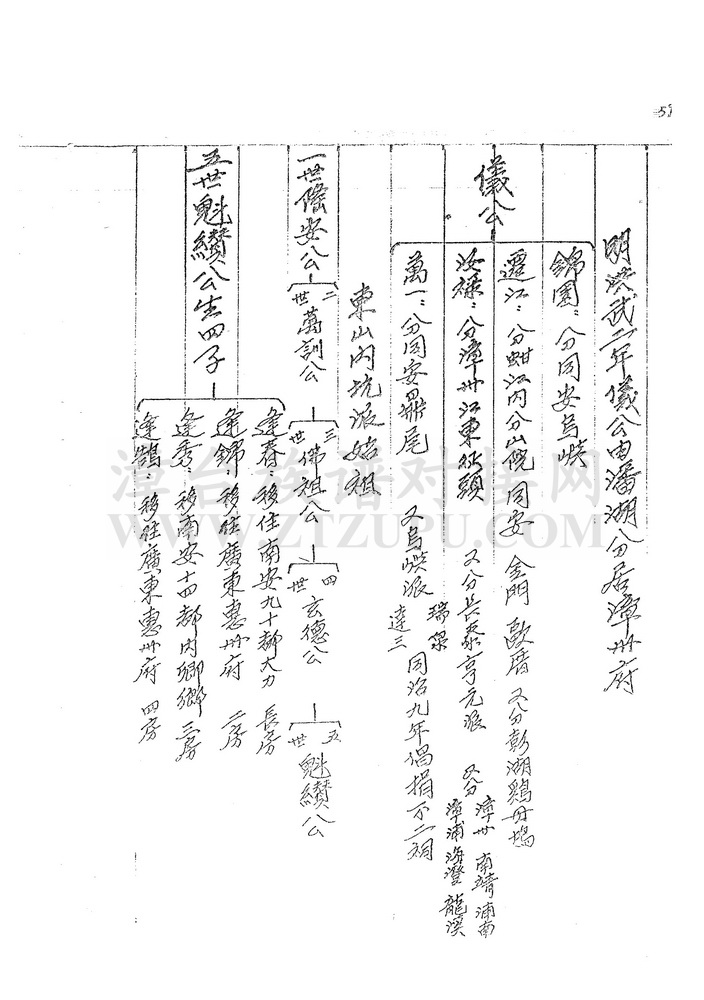 51
明洪武二年儀公由潘湖分居漳州府
儀公
錦園：分同安烏嶼
遷江：分蚶江內分山侊 同安 金門 歐厝 又分彭湖鷄母塢
汝祿：分漳州江東 頭 又分長泰亨元派 又分 漳州 南靖 浦南
漳浦 海澄 龍溪
萬一：分同安鼎尾 又烏嶼派 瑞泉
達三 同治九年倡捐不二祠
東山內坑派始祖
一世 安公
二世 萬訓公
三世 佛祖公
四世 玄德公
五世 魁纘公
五世魁纘公生四子
逢春：移住南安九十都大力 長房
逢錦：移住廣東惠州府 二房
逢秀：移南安十四都內 鄉 三房
逢鵠：移住廣東惠州府 四房
漳台族谱对接网
WWW.ZTZUPU.COM